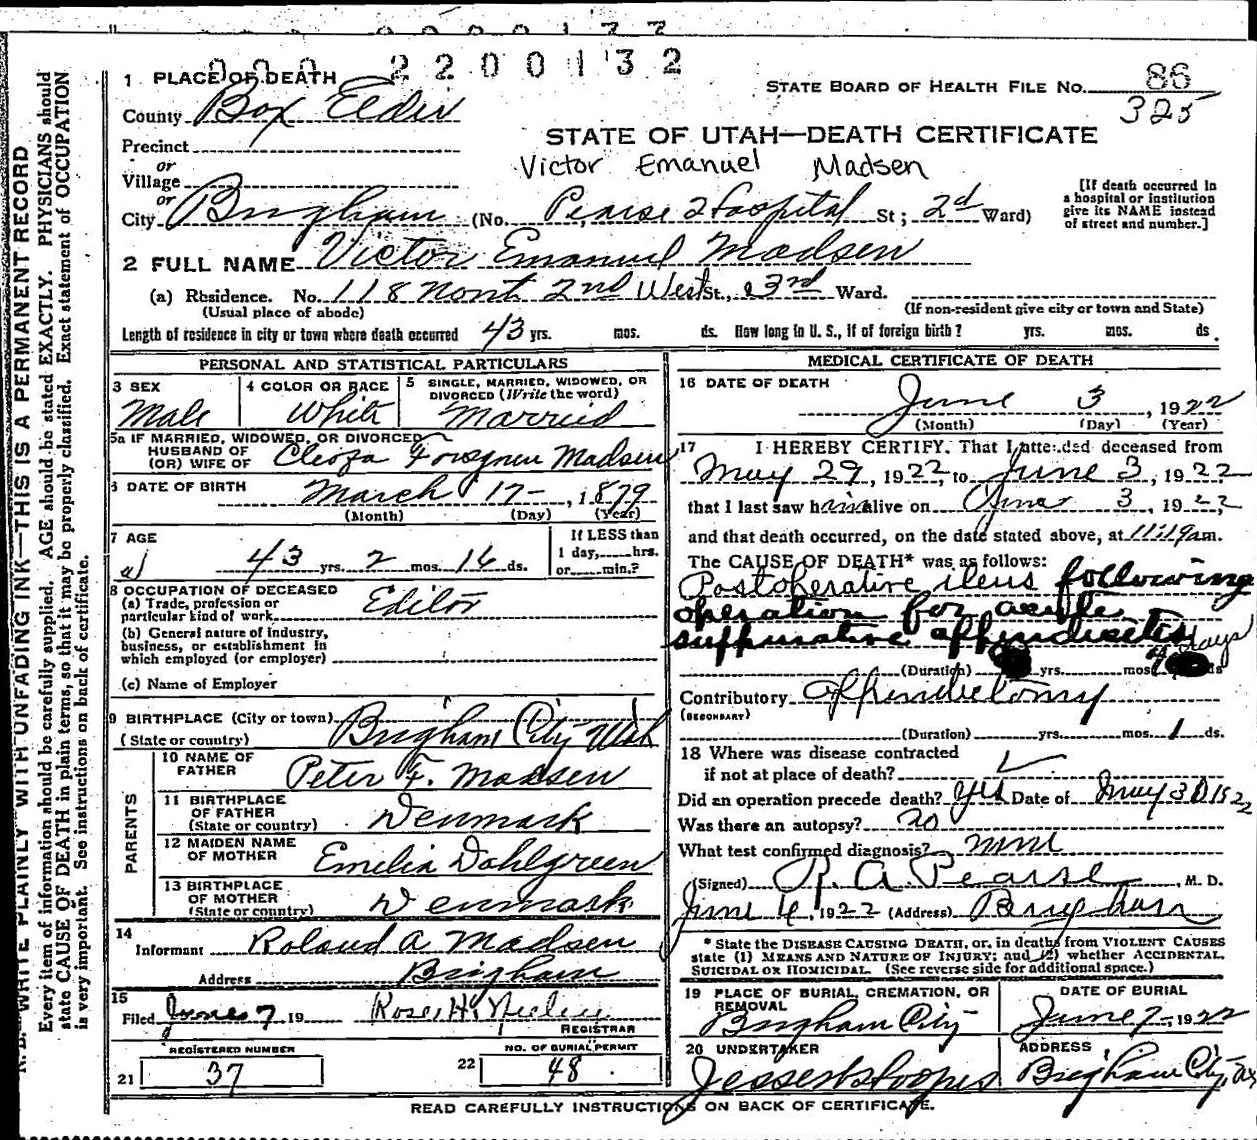 2200132
1 PLACE OF DEATH
STATE BOARD OF HEALTH FILE NO. 86
325
County Box Elder
STATE OF UTAH—DEATH CERTIFICATE
Precinct
Victor Emanuel Madsen
or
Village
or
City Brigham (No. Pearse Hospital St; 2d Ward)
[If death occurred in
a hospital or institution
give its NAME instead
of street and number.]
2 FULL NAME Victor Emanuel Madsen
(a) Residence. No. 118 North 2nd West St., 3rd Ward.
(Usual place of abode) (If non-resident give city or town and State)
Length of residence in city or town where death occurred 43 yrs. mos. ds. How long in U. S., if of foreign birth? yrs. mos. ds.
PERSONAL AND STATISTICAL PARTICULARS
3 SEX
Male
4 COLOR OR RACE
White
5 SINGLE, MARRIED, WIDOWED, OR
DIVORCED (Write the word)
Married
5a IF MARRIED, WIDOWED, OR DIVORCED
HUSBAND OF
(OR) WIFE OF Forsgren Madsen
6 DATE OF BIRTH March 17-, 1879
(Month) (Day) (Year)
7 AGE
43 yrs. 2 mos. 16 ds.
If LESS than
1 day,....hrs.
or....min.?
8 OCCUPATION OF DECEASED
(a) Trade, profession or
particular kind of work Editor
(b) General nature of industry,
business, or establishment in
which employed (or employer)
(c) Name of Employer
9 BIRTHPLACE (City or town)
(State or country) Brigham City Utah
PARENTS
10 NAME OF
FATHER Peter F. Madsen
11 BIRTHPLACE
OF FATHER
(State or country) Denmark
12 MAIDEN NAME
OF MOTHER Emelia Dahlgreen
13 BIRTHPLACE
OF MOTHER
(State or country) Denmark
14
Informant Roland A Madsen
Address Brigham
15
Filed June 7, 19 Rose H.
REGISTRAR
REGISTERED NUMBER
21 37
NO. OF BURIAL PERMIT
22 48
MEDICAL CERTIFICATE OF DEATH
16 DATE OF DEATH
June 3, 1922
(Month) (Day) (Year)
17 I HEREBY CERTIFY. That I attended deceased from
May 29, 1922, to June 3, 1922
that I last saw him alive on June 3, 1922
and that death occurred, on the date stated above, at 11:19am.
The CAUSE OF DEATH* was as follows:
Postoperative ileus following
operation for acute
suppurative appendicitis
(Duration) yrs. mos. 4 days ds
Contributory Appendectomy
(SECONDARY)
(Duration) yrs. mos. 1 ds.
18 Where was disease contracted
if not at place of death?
Did an operation precede death? yes Date of May 30 1922
Was there an autopsy? no
What test confirmed diagnosis? none
(Signed) R. A. Pearse, M. D.
June 4, 1922 (Address) Brigham
* State the DISEASE CAUSING DEATH, or, in deaths from VIOLENT CAUSES
state (1) MEANS AND NATURE OF INJURY; and (2) whether ACCIDENTAL,
SUICIDAL OR HOMICIDAL. (See reverse side for additional space.)
19 PLACE OF BURIAL, CREMATION, OR
REMOVAL
Brigham City
DATE OF BURIAL
June 7-, 1922
20 UNDERTAKER
ADDRESS
Brigham City,
READ CAREFULLY INSTRUCTIONS ON BACK OF CERTIFICATE.
WRITE PLAINLY WITH UNFADING INK—THIS IS A PERMANENT RECORD
Every item of information should be carefully supplied. AGE should be stated EXACTLY. PHYSICIANS should
state CAUSE OF DEATH in plain terms, so that it may be properly classified. Exact statement of OCCUPATION
is very important. See instructions on back of certificate.